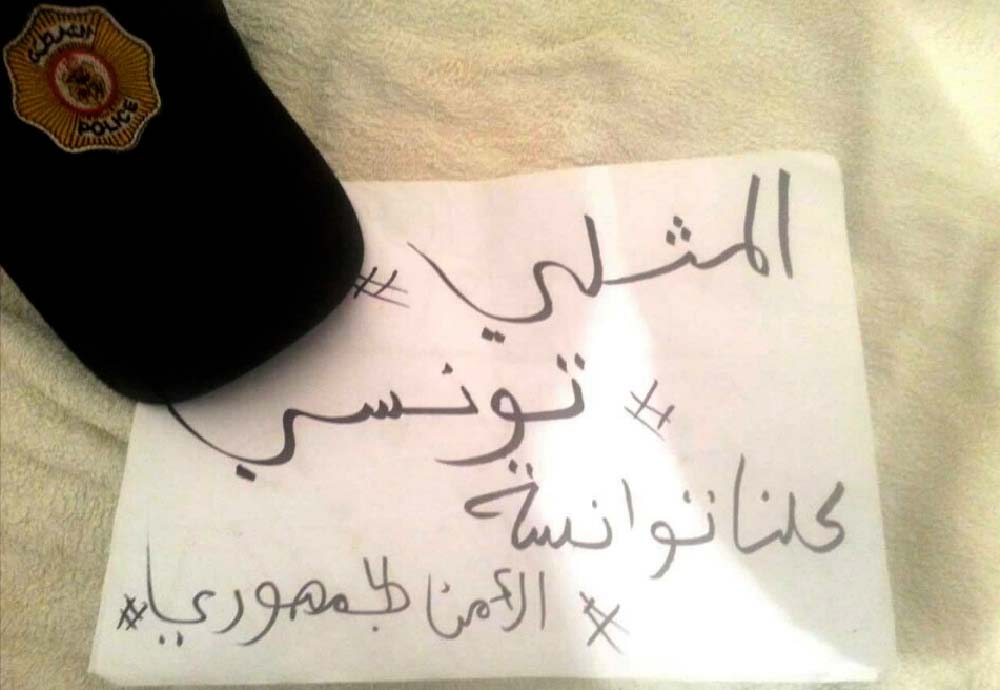 الشرطة
POLICE
المثلي #
# تونسي
كلنا توانسة
# الأمن الجمهوري #